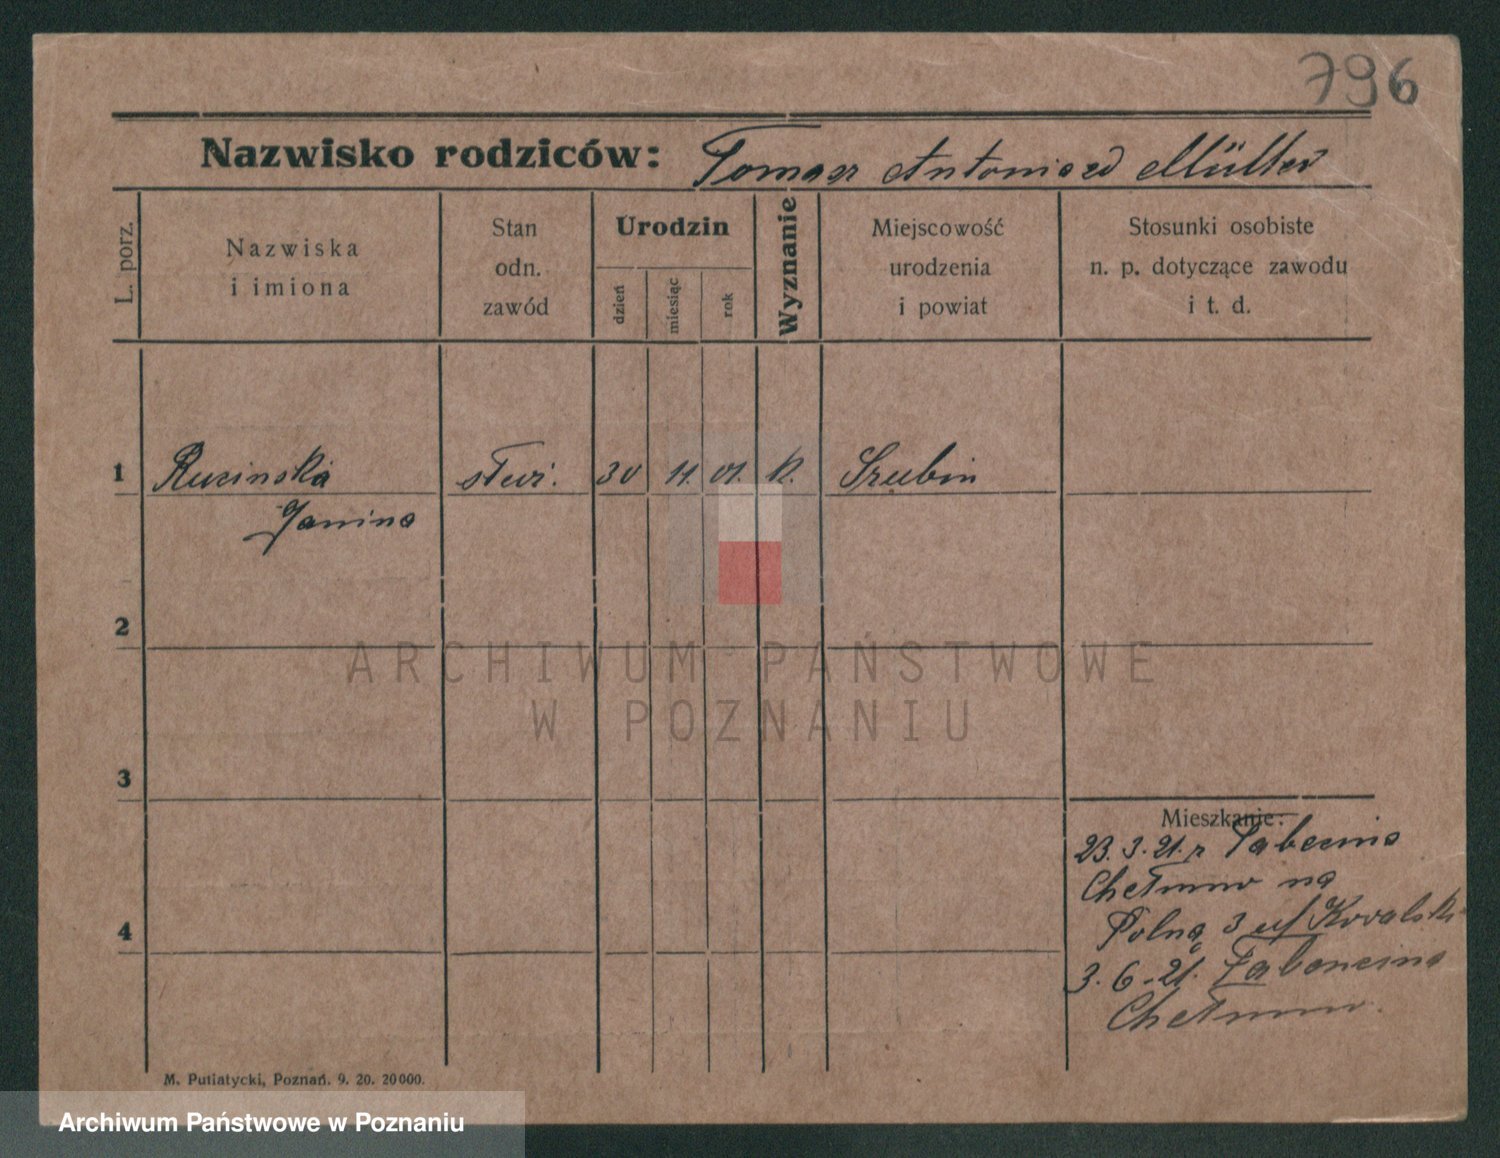 796
Nazwisko rodziców: Tomasz Antonina Müller
L. porz.
Nazwiska
i imiona
Stan
odn.
zawód
Urodzin
dzień
miesiąc
rok
Wyznanie
Miejscowość
urodzenia
i powiat
Stosunki osobiste
n. p. dotyczące zawodu
i t. d.
1 Rucinska służ. 30 11. 01. k. Szubin
Janina
2
3
4
Mieszkanie:
23. 3. 21. z
Chełmno na
Polną 3 u/ Kowalski
3. 6. 21.
Chełmno.
ARCHIWUM PAŃSTWOWE
W POZNANIU
M. Putiatycki, Poznań. 9. 20. 20000.
Archiwum Państwowe w Poznaniu